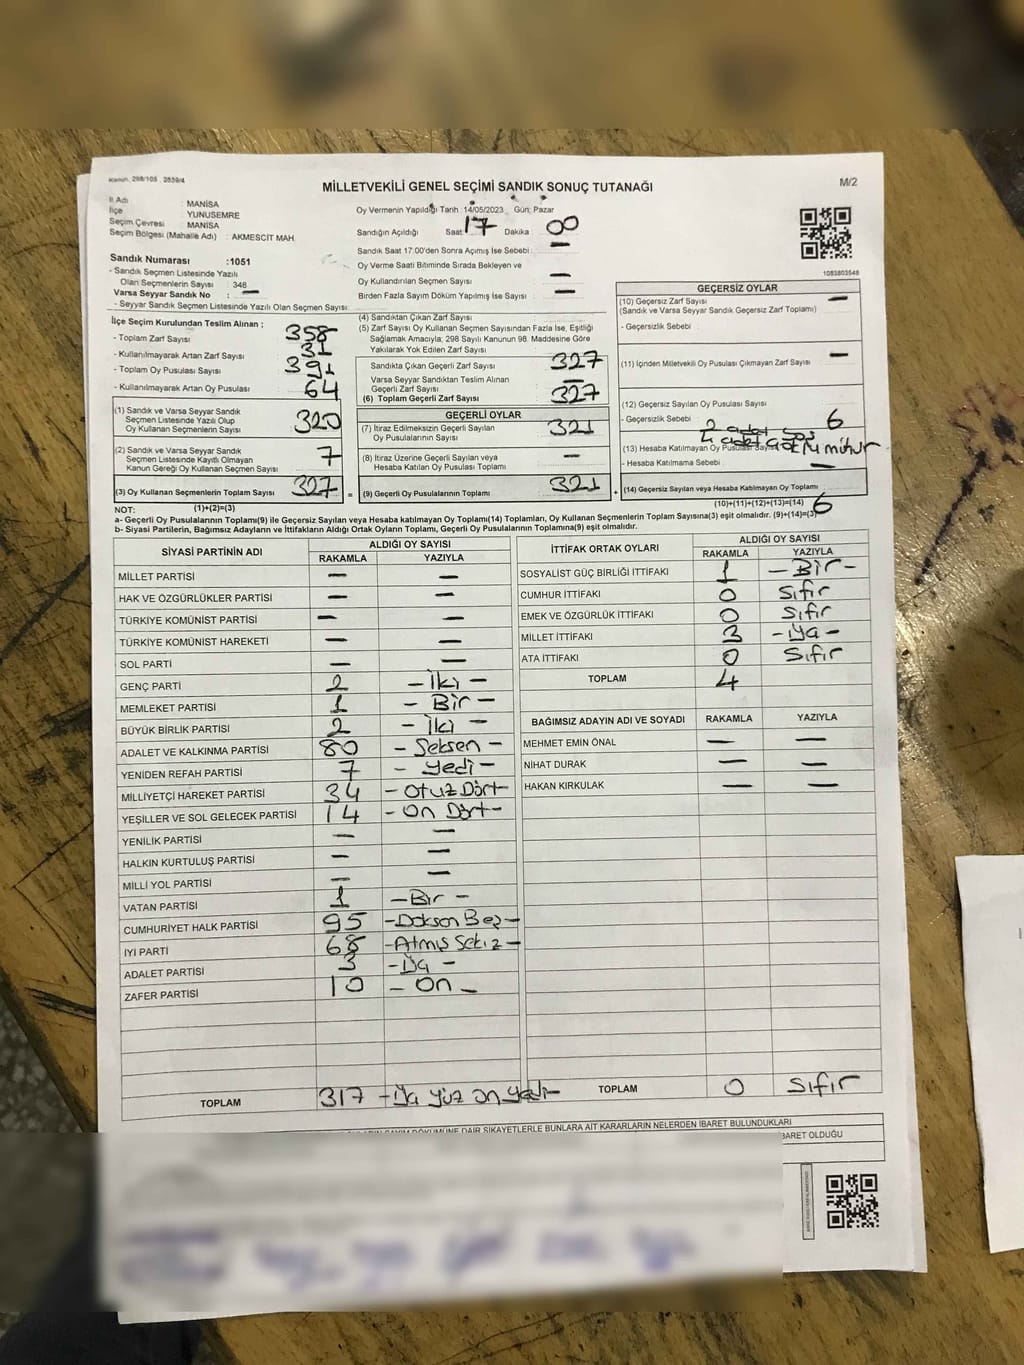 Kanun, 298/105 , 2839/4
MİLLETVEKİLİ GENEL SEÇİMİ SANDIK SONUÇ TUTANAĞI
M/2
İl Adı : MANİSA
İlçe : YUNUSEMRE
Seçim Çevresi : MANİSA
Seçim Bölgesi (Mahalle Adı) : AKMESCİT MAH.
Sandık Numarası :1051
- Sandık Seçmen Listesinde Yazılı
Olan Seçmenlerin Sayısı : 348
Varsa Seyyar Sandık No : —
- Seyyar Sandık Seçmen Listesinde Yazılı Olan Seçmen Sayısı:
Oy Vermenin Yapıldığı Tarih :14/05/2023 Gün: Pazar
Sandığın Açıldığı Saat: 17 Dakika : 00
Sandık Saat 17:00'den Sonra Açımış İse Sebebi : —
Oy Verme Saati Bitiminde Sırada Bekleyen ve
Oy Kullandırılan Seçmen Sayısı : —
Birden Fazla Sayım Döküm Yapılmış İse Sayısı : —
1083803548
İlçe Seçim Kurulundan Teslim Alınan :
- Toplam Zarf Sayısı : 358
- Kullanılmayarak Artan Zarf Sayısı : 31
- Toplam Oy Pusulası Sayısı : 391
- Kullanılmayarak Artan Oy Pusulası : 64
(1) Sandık ve Varsa Seyyar Sandık
Seçmen Listesinde Yazılı Olup
Oy Kullanan Seçmenlerin Sayısı : 320
(2) Sandık ve Varsa Seyyar Sandık
Seçmen Listesinde Kayıtlı Olmayan
Kanun Gereği Oy Kullanan Seçmen Sayısı : 7
(3) Oy Kullanan Seçmenlerin Toplam Sayısı : 327
(1)+(2)=(3)
(4) Sandıktan Çıkan Zarf Sayısı :
(5) Zarf Sayısı Oy Kullanan Seçmen Sayısından Fazla İse, Eşitliği
Sağlamak Amacıyla; 298 Sayılı Kanunun 98. Maddesine Göre
Yakılarak Yok Edilen Zarf Sayısı
Sandıkta Çıkan Geçerli Zarf Sayısı : 327
Varsa Seyyar Sandıktan Teslim Alınan
Geçerli Zarf Sayısı : —
(6) Toplam Geçerli Zarf Sayısı : 327
GEÇERLİ OYLAR
(7) İtiraz Edilmeksizin Geçerli Sayılan
Oy Pusulalarının Sayısı : 321
(8) İtiraz Üzerine Geçerli Sayılan veya
Hesaba Katılan Oy Pusulası Toplamı : —
= (9) Geçerli Oy Pusulalarının Toplamı : 321
GEÇERSİZ OYLAR
(10) Geçersiz Zarf Sayısı : —
(Sandık ve Varsa Seyyar Sandık Geçersiz Zarf Toplamı)
- Geçersizlik Sebebi :
(11) İçinden Milletvekili Oy Pusulası Çıkmayan Zarf Sayısı : —
(12) Geçersiz Sayılan Oy Pusulası Sayısı : 6
- Geçersizlik Sebebi : 2 adet
4 adet çoklu mühür
(13) Hesaba Katılmayan Oy Pusulası Sayısı
- Hesaba Katılmama Sebebi : —
+ (14) Geçersiz Sayılan veya Hesaba Katılmayan Oy Toplamı :
(10)+(11)+(12)+(13)=(14) 6
NOT:
a- Geçerli Oy Pusulalarının Toplamı(9) ile Geçersiz Sayılan veya Hesaba katılmayan Oy Toplamı(14) Toplamları, Oy Kullanan Seçmenlerin Toplam Sayısına(3) eşit olmalıdır. (9)+(14)=(3)
b- Siyasi Partilerin, Bağımsız Adayların ve İttifakların Aldığı Ortak Oyların Toplamı, Geçerli Oy Pusulalarının Toplamına(9) eşit olmalıdır.
SİYASİ PARTİNİN ADI ALDIĞI OY SAYISI
RAKAMLA YAZIYLA
MİLLET PARTİSİ — —
HAK VE ÖZGÜRLÜKLER PARTİSİ — —
TÜRKİYE KOMÜNİST PARTİSİ — —
TÜRKİYE KOMÜNİST HAREKETİ — —
SOL PARTİ — —
GENÇ PARTİ 2 - İki -
MEMLEKET PARTİSİ 1 - Bir -
BÜYÜK BİRLİK PARTİSİ 2 - İki -
ADALET VE KALKINMA PARTİSİ 80 - Seksen -
YENİDEN REFAH PARTİSİ 7 - Yedi -
MİLLİYETÇİ HAREKET PARTİSİ 34 - Otuz Dört -
YEŞİLLER VE SOL GELECEK PARTİSİ 14 - On Dört -
YENİLİK PARTİSİ — —
HALKIN KURTULUŞ PARTİSİ — —
MİLLİ YOL PARTİSİ — —
VATAN PARTİSİ 1 - Bir -
CUMHURİYET HALK PARTİSİ 95 - Doksan Beş -
İYİ PARTİ 68 - Atmış Sekiz -
ADALET PARTİSİ 3 - Üç -
ZAFER PARTİSİ 10 - On -
TOPLAM 317 - Üç yüz on yedi -
İTTİFAK ORTAK OYLARI ALDIĞI OY SAYISI
RAKAMLA YAZIYLA
SOSYALİST GÜÇ BİRLİĞİ İTTİFAKI 1 - Bir -
CUMHUR İTTİFAKI 0 Sıfır
EMEK VE ÖZGÜRLÜK İTTİFAKI 0 Sıfır
MİLLET İTTİFAKI 3 - Üç -
ATA İTTİFAKI 0 Sıfır
TOPLAM 4
BAĞIMSIZ ADAYIN ADI VE SOYADI RAKAMLA YAZIYLA
MEHMET EMİN ÖNAL — —
NİHAT DURAK — —
HAKAN KIRKULAK — —
TOPLAM 0 Sıfır
SAYIM DÖKÜMÜNE DAİR ŞİKAYETLERLE BUNLARA AİT KARARLARIN NELERDEN İBARET BULUNDUKLARI
BARET OLDUĞU